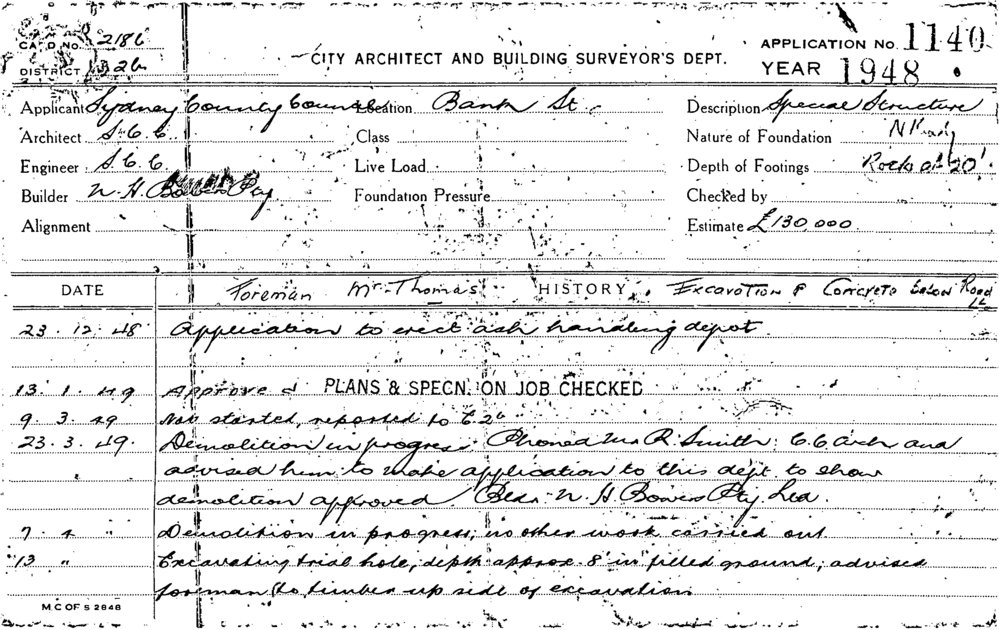 CARD No. 2186
DISTRICT 132b
CITY ARCHITECT AND BUILDING SURVEYOR'S DEPT.
APPLICATION No. 1140
YEAR 1948
Applicant Sydney County Council Location Bank St. Description Special Structure
Architect S.C.C. Class Nature of Foundation
Engineer S.C.C. Live Load Depth of Footings Rock at 20'
Builder W. H. Bowers Pty Foundation Pressure Checked by
Alignment Estimate £130,000
DATE Foreman Mr Thomas HISTORY. Excavation & Concrete below Road
23.12.48 Application to erect ash handling depot
13.1.49 Approved PLANS & SPECN. ON JOB CHECKED
9.3.49 Not started, reported to
23.3.49. Demolition in progress. Phoned Mr R. Smith: C.C. Arch and
advised him to make application to this dept. to show
demolition approved. Bldr. W. H. Bowers Pty. Ltd.
7.4 " Demolition in progress; no other work carried out
"13 " Excavating trial hole; depth approx. 8' in filled ground; advised
foreman to timber up side of excavation
M C OF S 2848